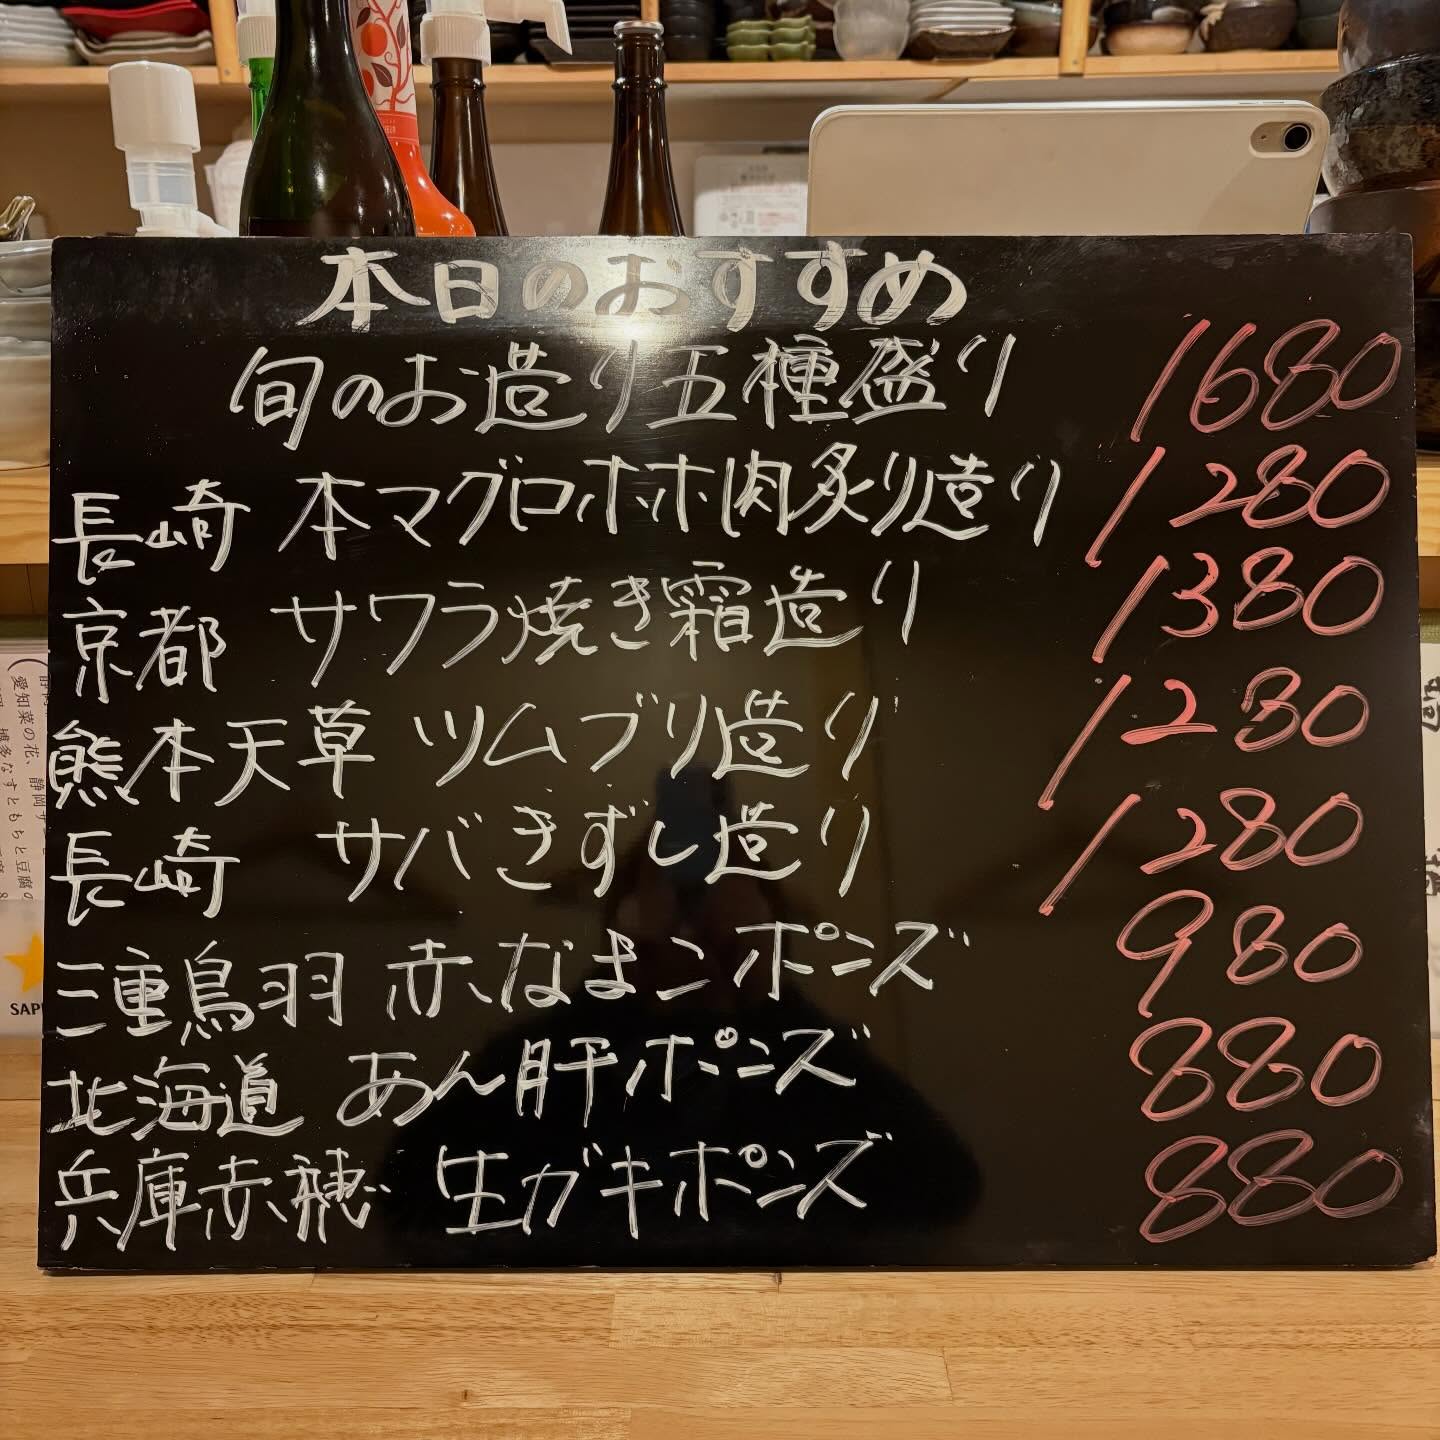 本日のおすすめ
旬のお造り五種盛り 1680
長崎 本マグロホホ肉炙り造り 1280
京都 サワラ焼き霜造り 1380
熊本天草 ツムブリ造り 1230
長崎 サバきずし造り 1280
三重鳥羽 赤なまこポンズ 980
北海道 あん肝ポンズ 880
兵庫赤穂 生ガキポンズ 880
愛知菜の花、静岡
SAPP